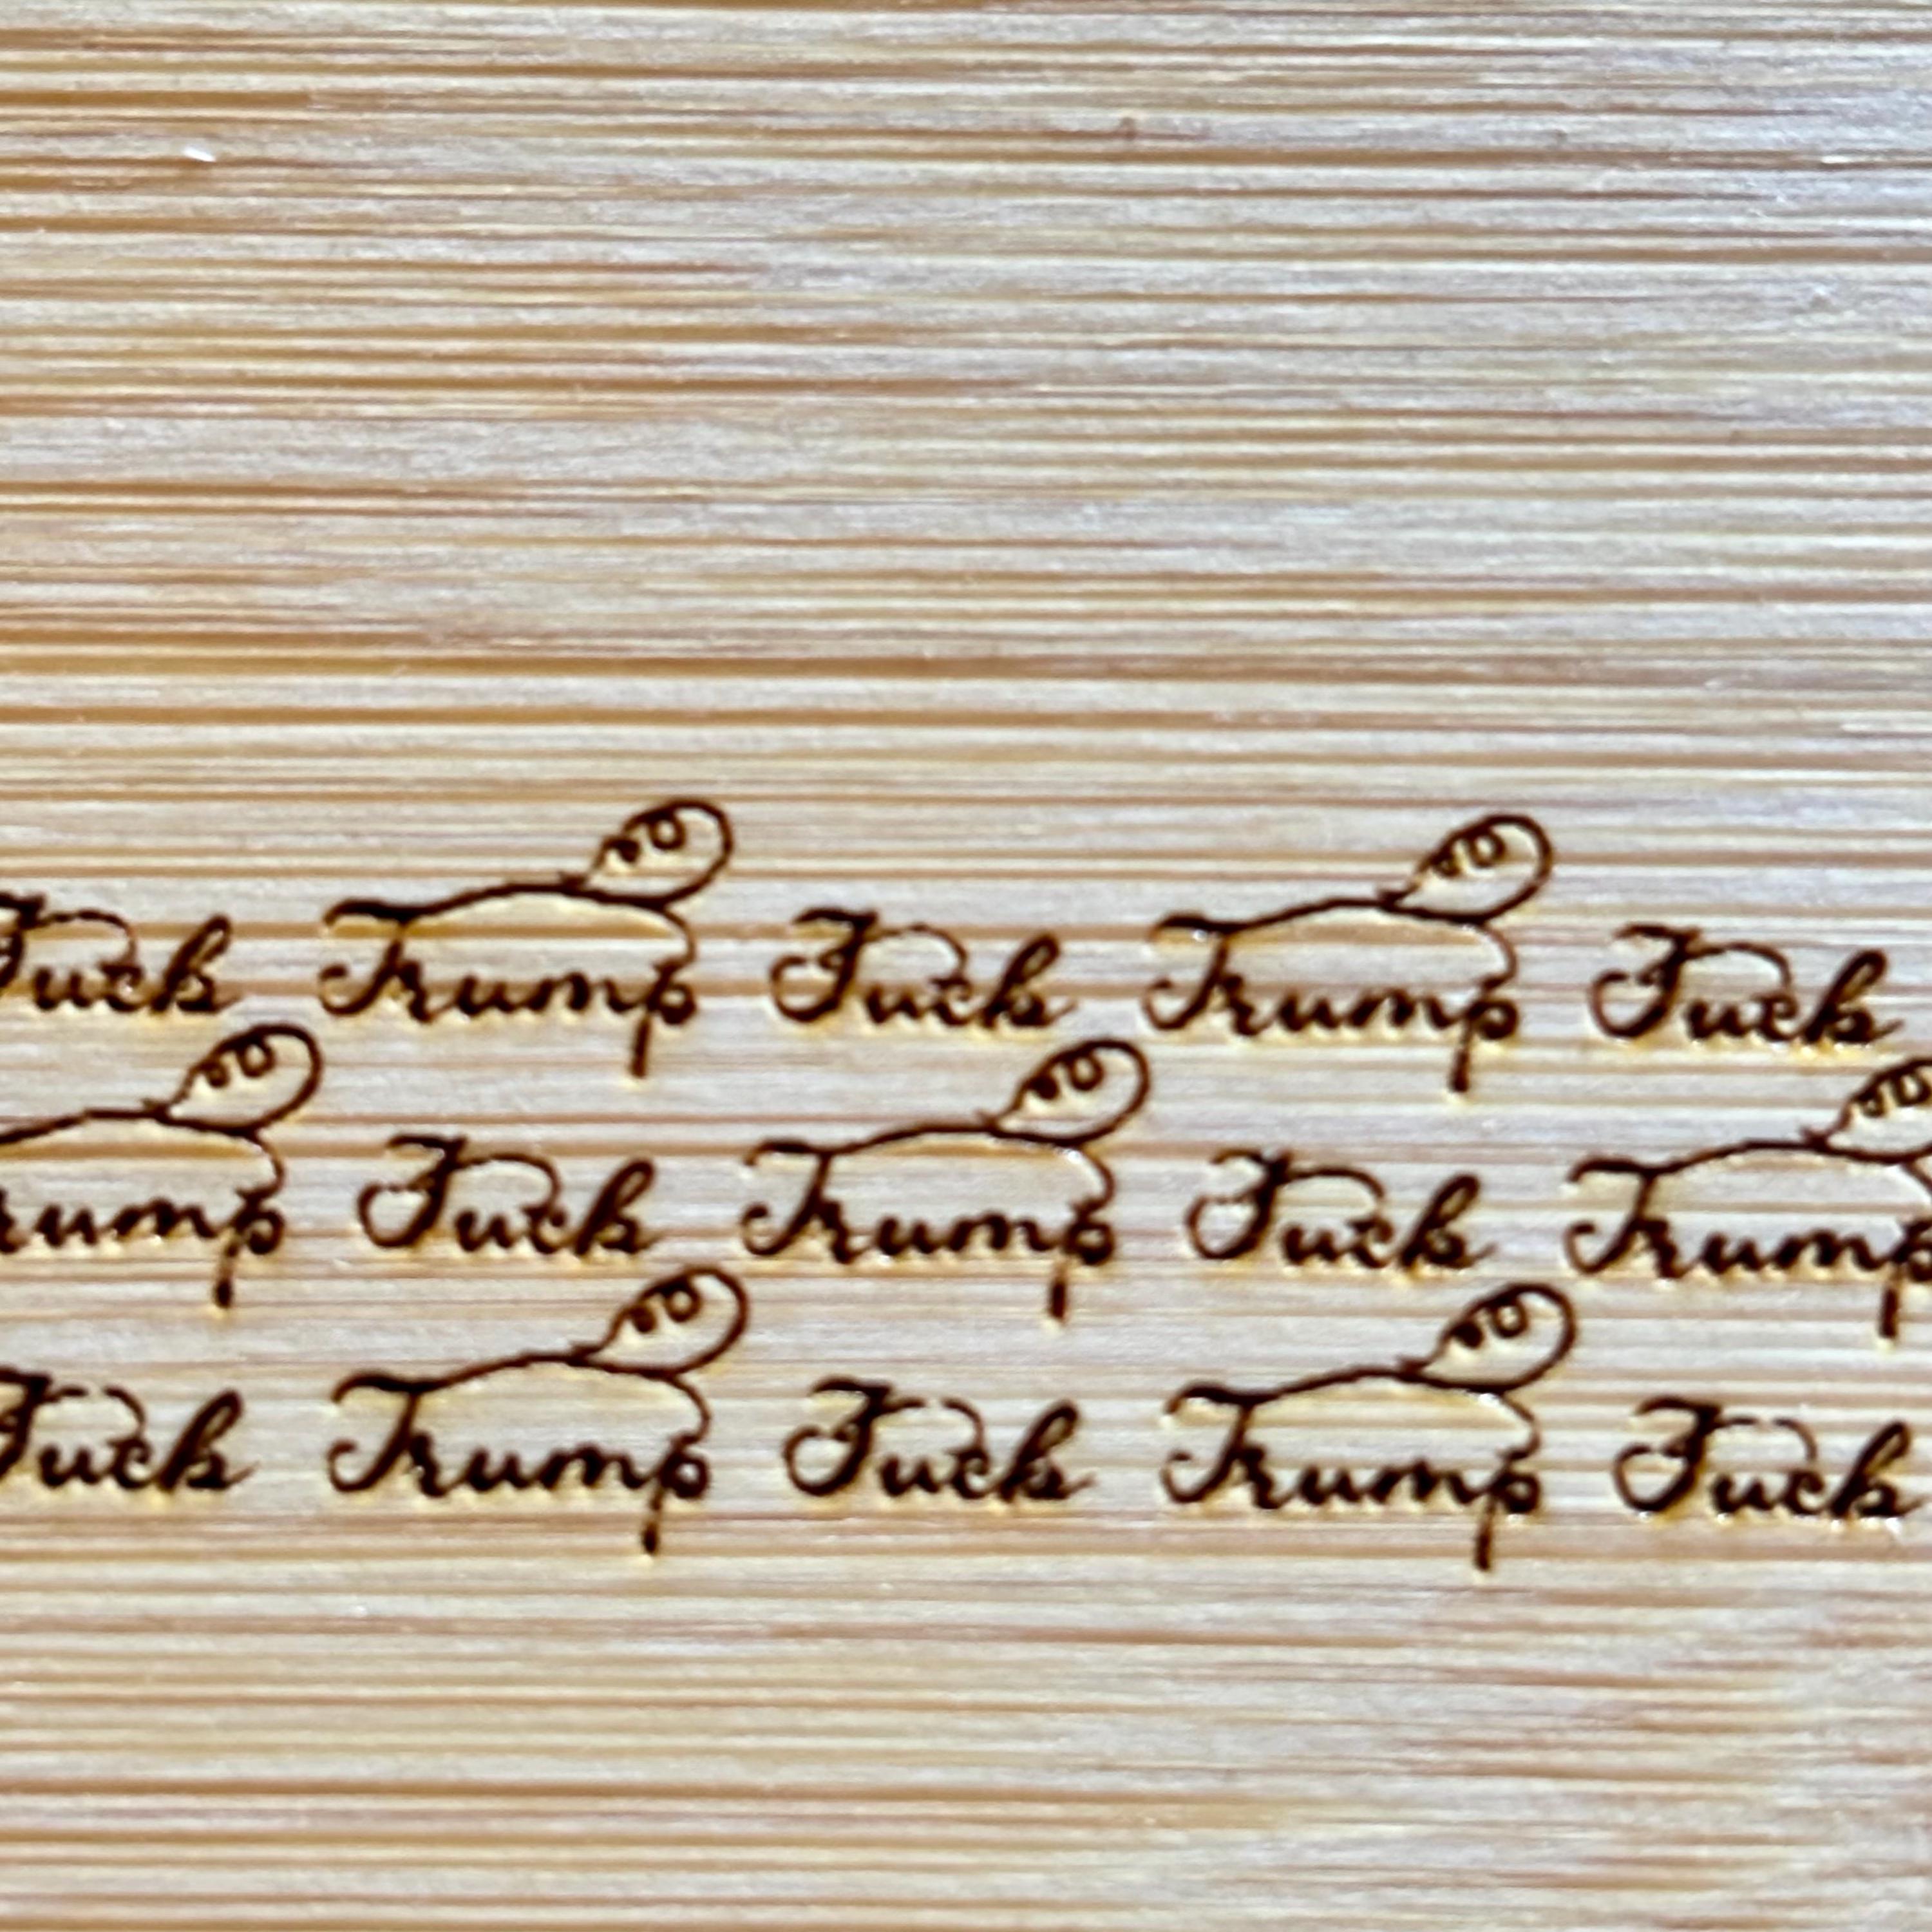 Fuck Trump Fuck Trump Fuck
Trump Fuck Trump Fuck Trump
Fuck Trump Fuck Trump Fuck